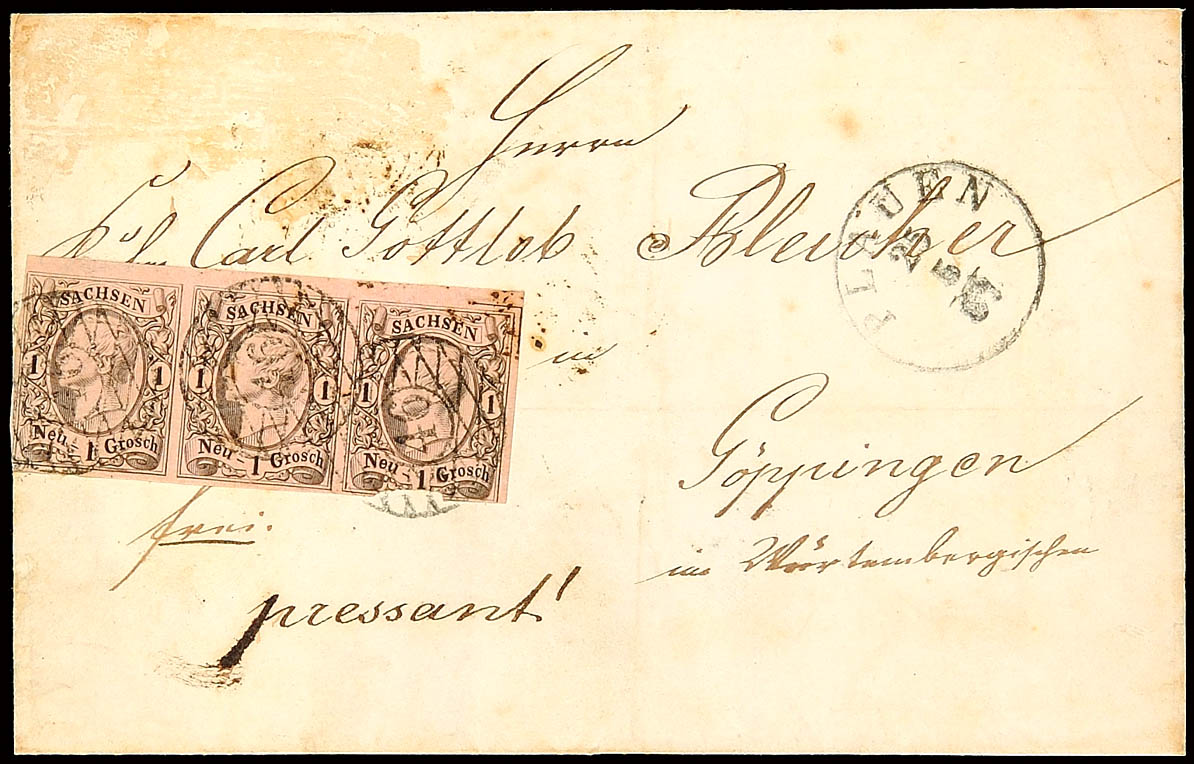 Herrn
Carl Gottlob Bleicher
in
Göppingen
im Würtembergischen
frei.
pressant!
PLAUEN
25
5
SACHSEN
1 1
Neu-1 Grosch
SACHSEN
1 1
Neu-1 Grosch
SACHSEN
1 1
Neu-1 Grosch